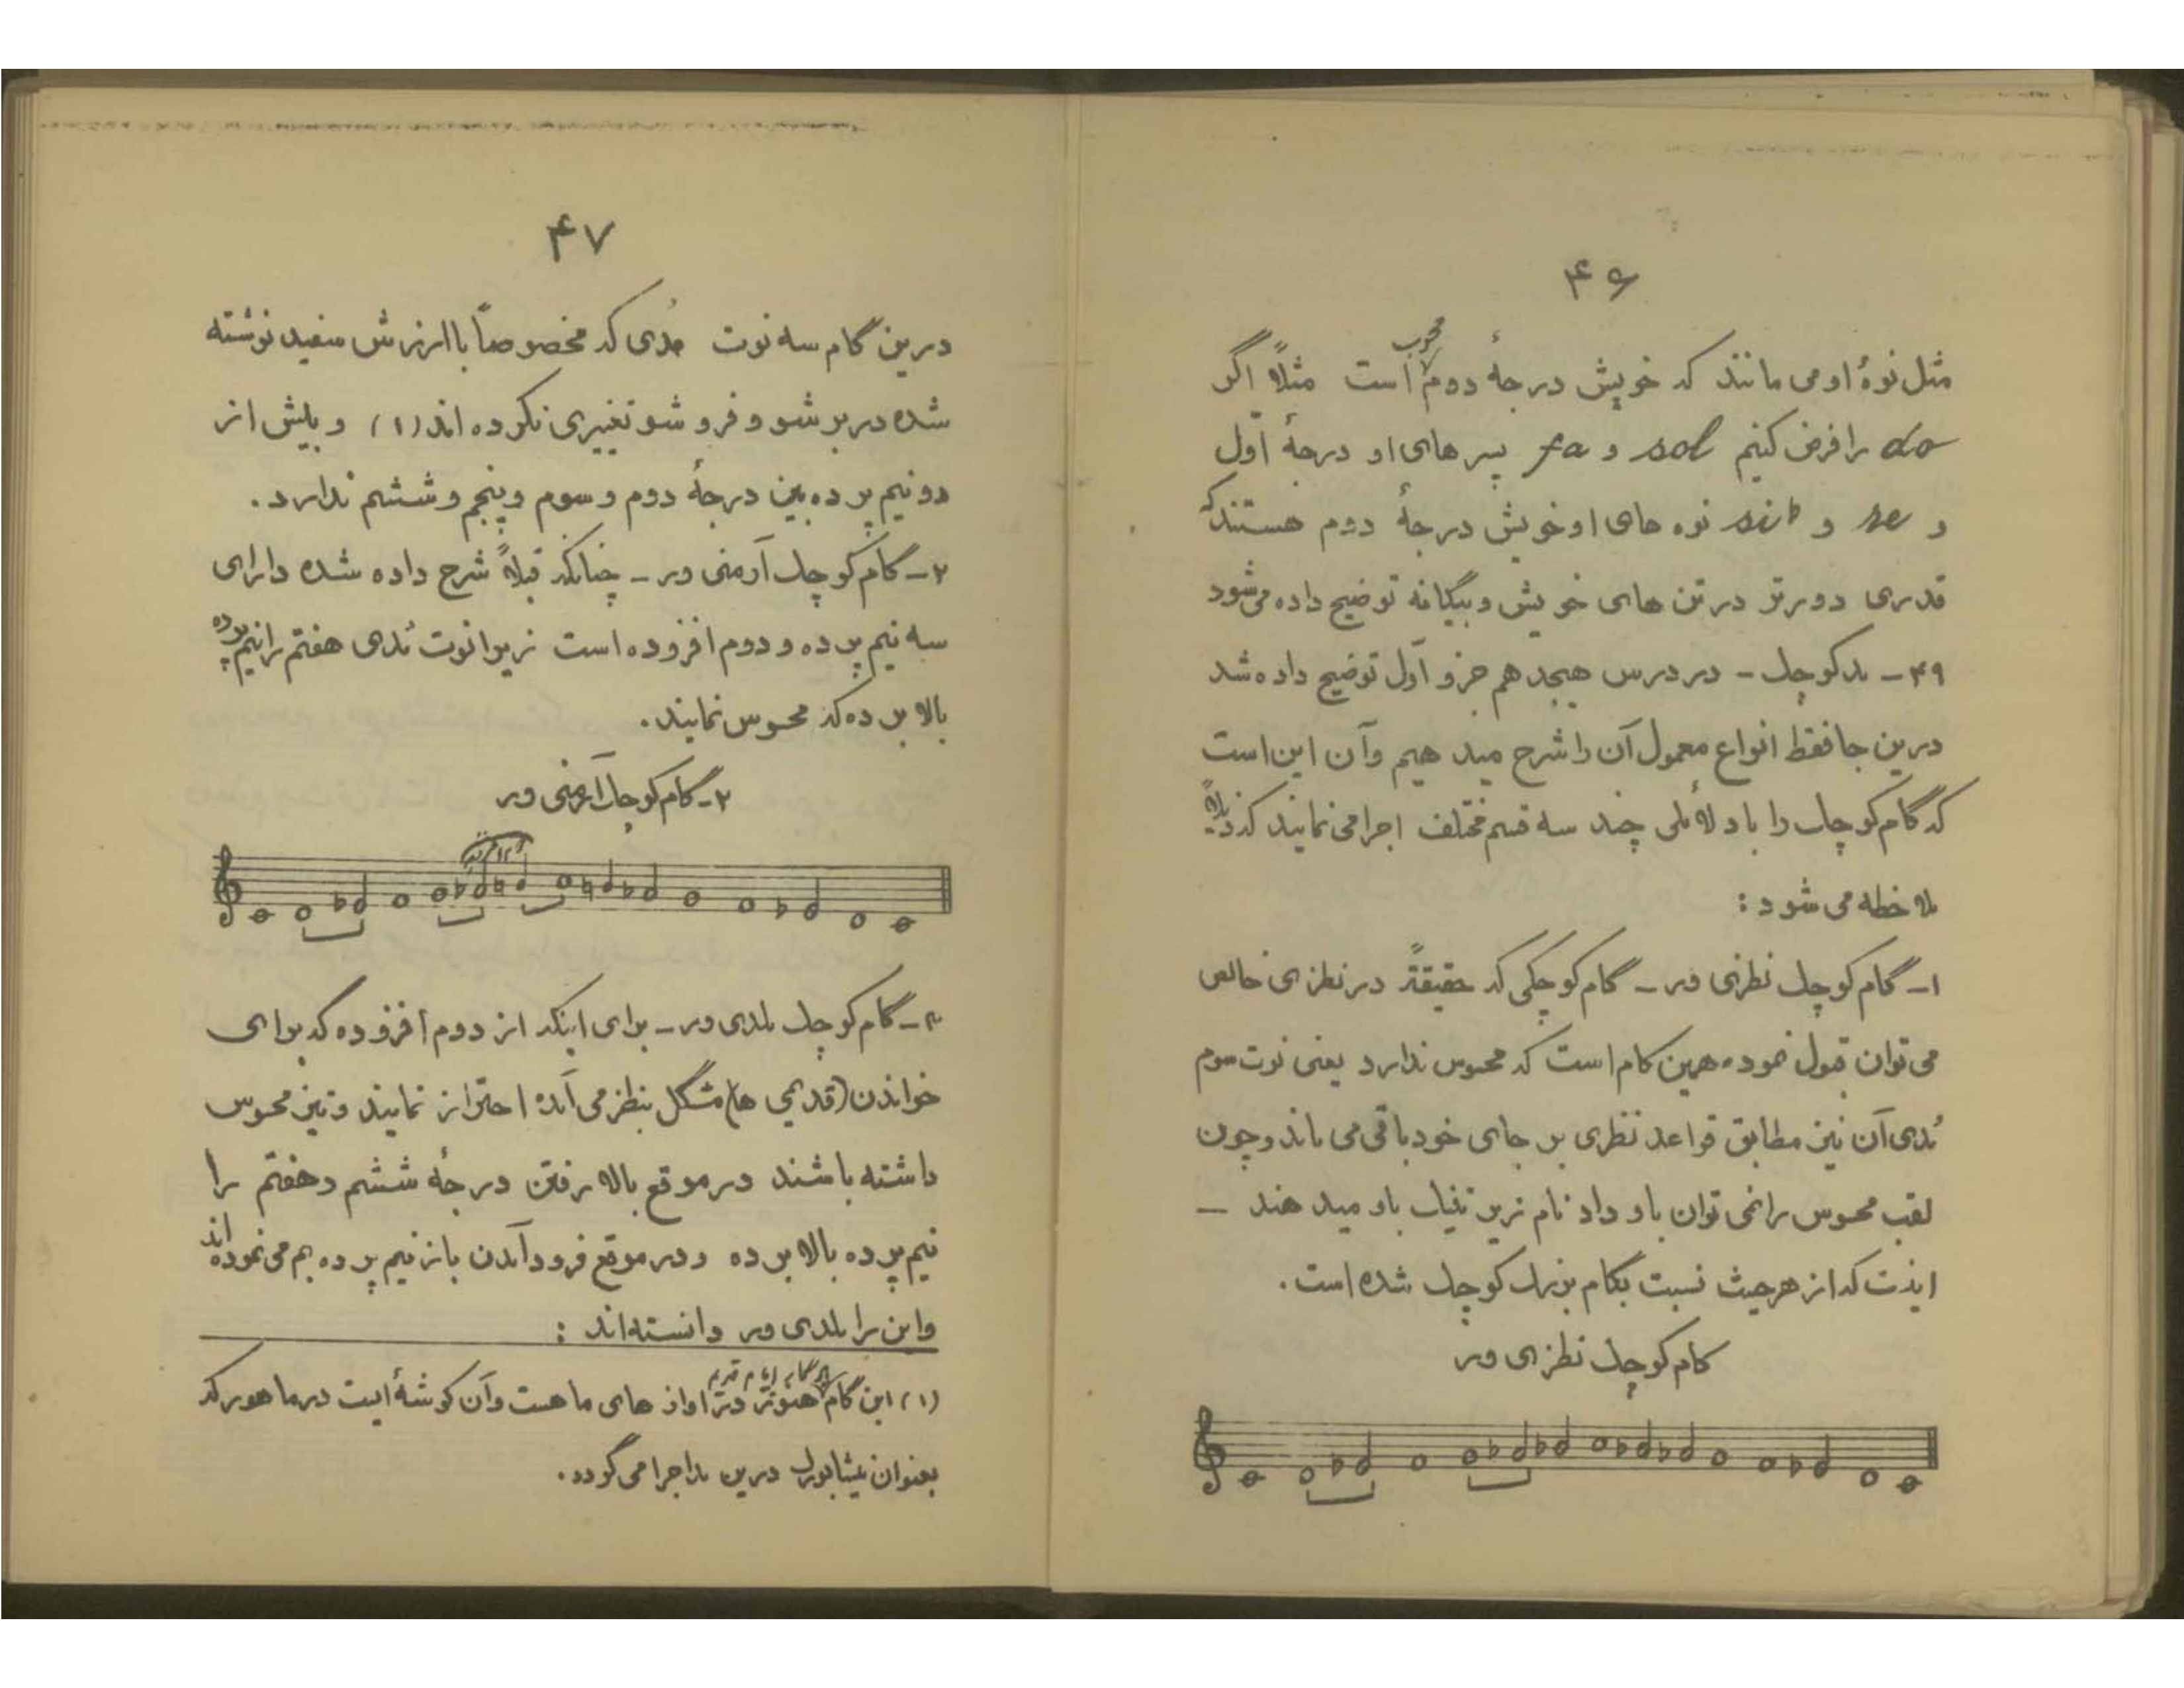 ۴۶
مثل نوهٔ او می مانند که خویش درجهٔ دوم محسوب است مثلاً اگر
do را فرض کنیم sol و fa پسرهای او درجهٔ اوّل
و re و sib نوه های او خویش درجهٔ دوم هستند که
قدری دورتر در تن های خویش و بیگانه توضیح داده می شود
۴۹ـ مد کوچک ـ در درس هیجدهم جزو اول توضیح داده شد
درین جا فقط انواع معمول آن را شرح میدهیم و آن این است
که گام کوچک را با دلائلی چند سه قسم مختلف اجرا می نمایند که ذیلاً
ملاحظه می شود :
۱ـ گام کوچک نظری ور ـ گام کوچکی که حقیقةً در نظری خالص
می توان قبول نمود همین گام است که محسوس ندارد یعنی نوت سوم
مُدی آن نیز مطابق قواعد نظری بر جای خود باقی می ماند و چون
لقب محسوس را نمی توان باو داد نام زیرتنیک باو میدهند ـ
اینست که از هر حیث نسبت بگام بزرگ کوچک شده است .
گام کوچک نظری ور
۴۷
درین گام سه نوت مُدی که مخصوصاً با ارزش سفید نوشته
شده در برشو و فروشو تغییری نکرده اند (۱) و بیش از
دو نیم پرده بین درجهٔ دوم و سوم و پنجم و ششم ندارد .
۲ـ گام کوچک آرمنی ور ـ چنانکه قبلاً شرح داده شده دارای
سه نیم پرده و دوم افزوده است زیرا نوت مُدی هفتم را نیم پرده
بالا برده که محسوس نمایند .
۲ـ گام کوچک آرمنی ور
۳ـ گام کوچک ملدی ور ـ برای اینکه از دوم افزوده که برای
خواندن (قدیمی ها) مشکل بنظر می آمده احتراز نمایند و نیز محسوس
داشته باشند در موقع بالا رفتن درجهٔ ششم و هفتم را
نیم پرده بالا برده و در موقع فرود آمدن باز نیم پرده بم می نموده اند
و این را ملدی ور دانسته اند :
(۱) این گام هنوز در آواز های ما هست و آن گوشهٔ ایست در ماهور که
بعنوان نیشابورک درین مد اجرا می گردد .